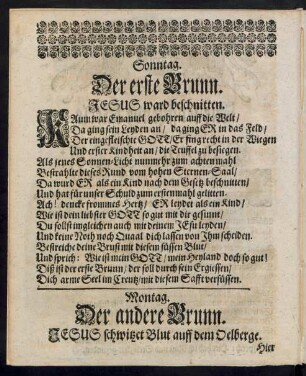 Sonntag.
Der erste Brunn.
JESUS ward beschnitten.
KAum war Emanuel gebohren auff die Welt/
Da ging sein Leyden an/ da ging ER in das Feld/
Der eingefleischte GOTT/ Er fing recht in der Wiegen
Und erster Kindheit an/ die Teuffel zu besiegen.
Als jenes Sonnen-Licht nunmehr zum achten mahl
Bestrahlte dieses Rund vom hohen Sternen-Saal/
Da wurd ER als ein Kind nach dem Gesetz beschnitten/
Und hat für unser Schuld zum erstenmahl gelitten.
Ach/ dencke frommes Hertz/ ER leydet als ein Kind/
Wie ist dein liebster GOTT so gut mit dir gesinnt/
Du sollst imgleichen auch mit deinem JEsu leyden/
Und keine Noth noch Quaal dich lassen von Ihm scheiden.
Bestreiche deine Brust mit diesem süssen Blut/
Und sprich: Wie ist mein GOTT/ mein Heyland doch so gut!
Diß ist der erste Brunn/ der soll durch sein Ergiessen/
Dich arme Seel im Creutz/ mit diesem Safft versüssen.
Montag.
Der andere Brunn.
JESUS schwitzet Blut auff dem Oelberge.
Hier